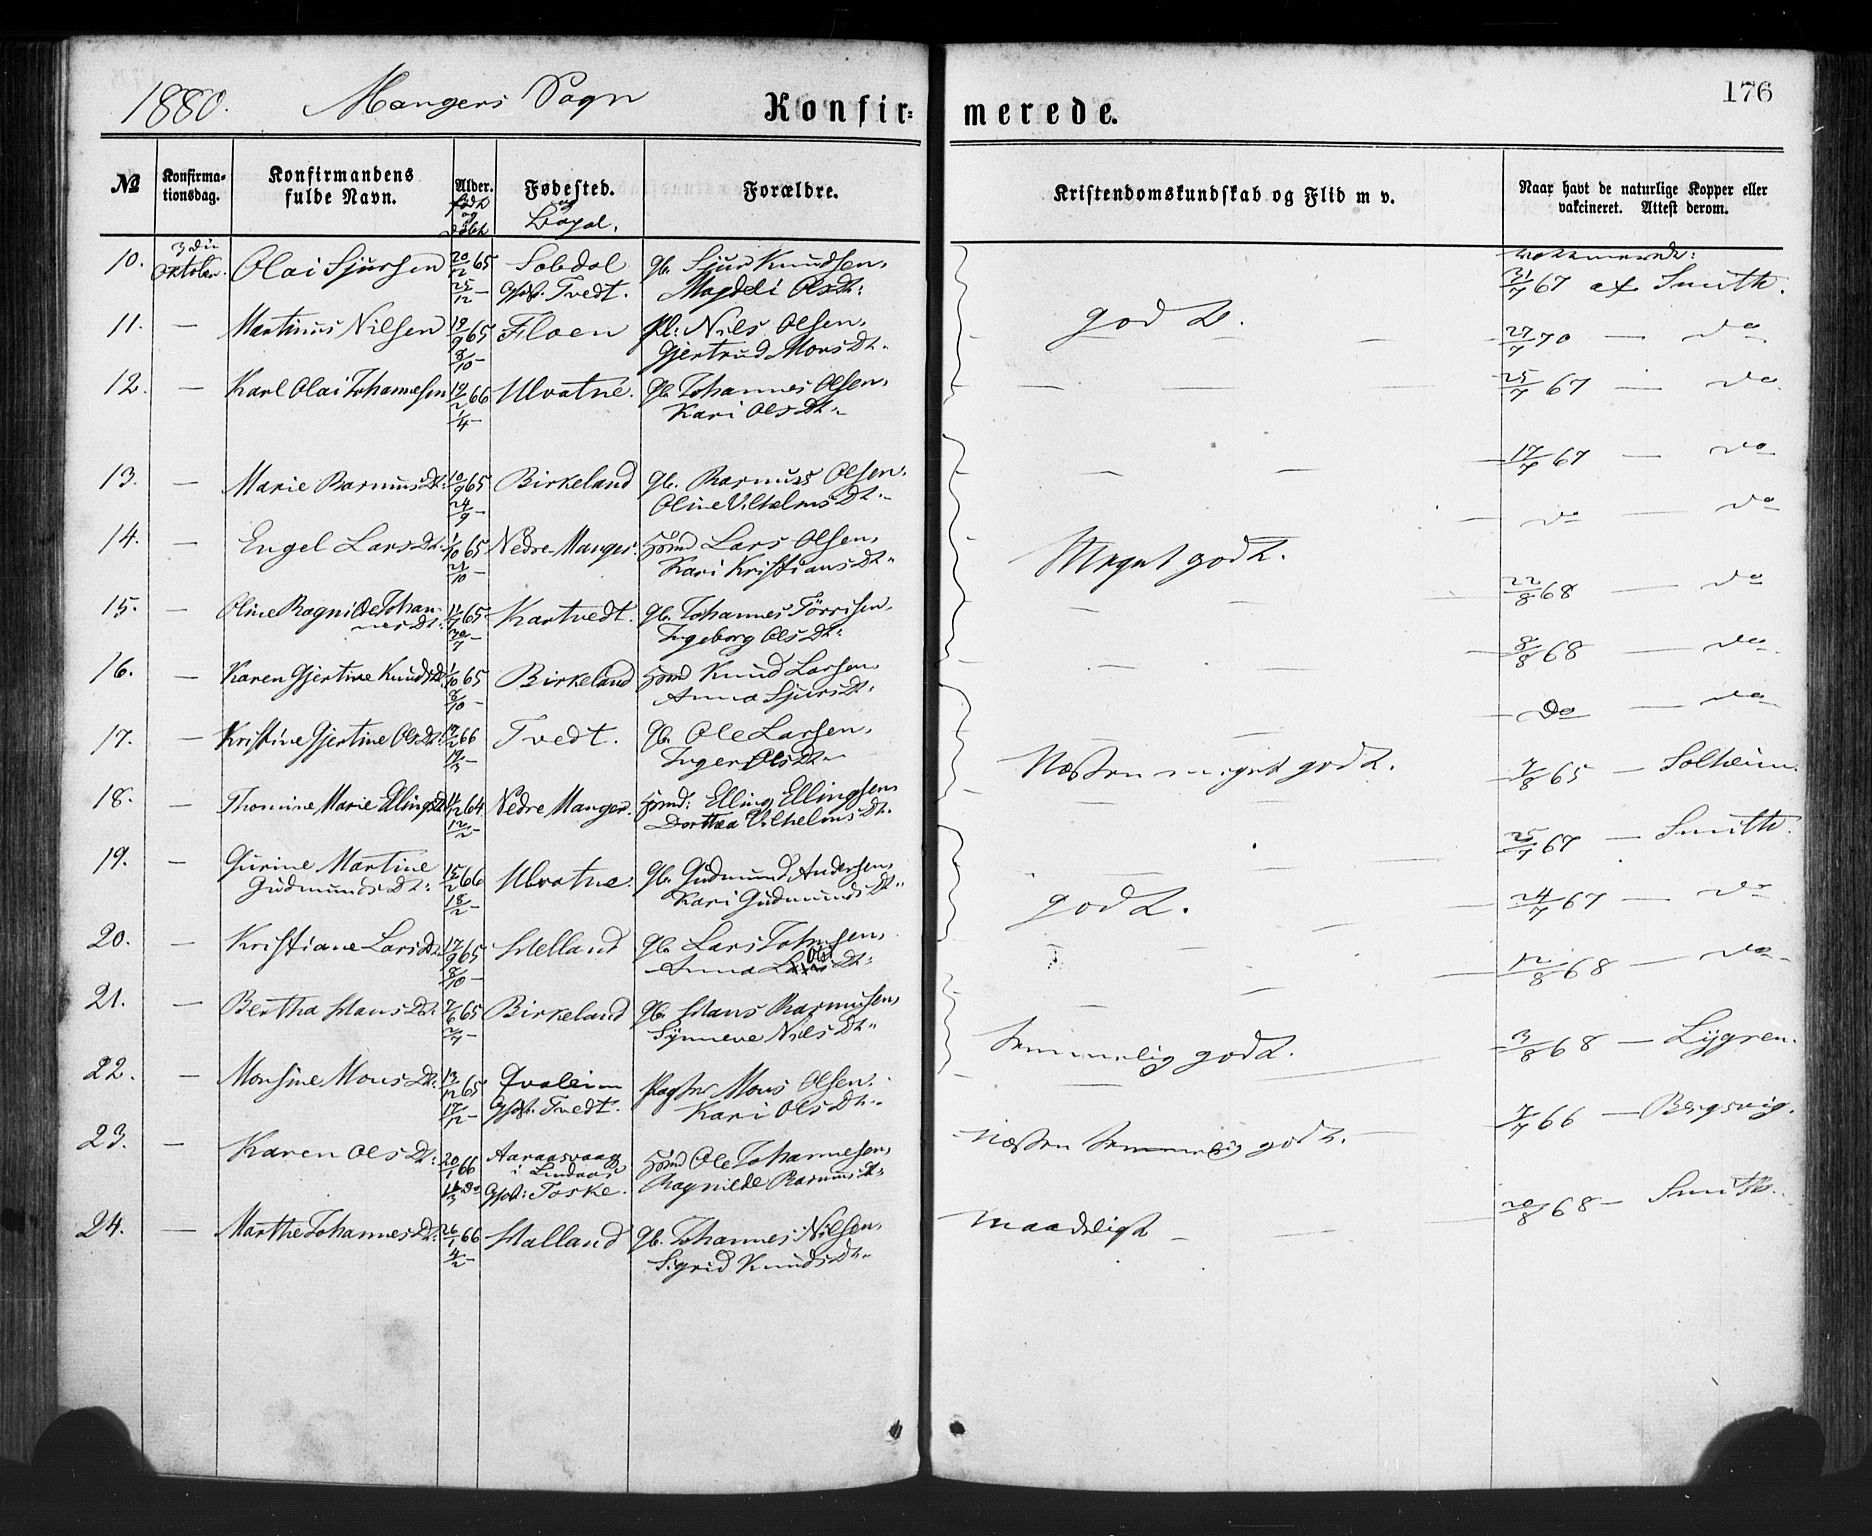 1880. Mangers Sogn Konfir= merede. 176
№ Konfirma-tionsdag. Konfirmandens fulde Navn. Alder. født og døbt Fødested. og Bopæl. Forældre. Kristendomskundskab og Flid m v. Naar havt de naturlige Kopper eller vakcineret. Attest derom.
10. 3die Oktober. Olai Sjursen 20/12 65 Sobdal Gb. Sjur Knudsen,
25/12 — Tvedt. Magdeli OlsDt: godt. 31/7 67 af Smith.
11. — Martinus Nilsen 19/9 65 Floen Pl: Nils Olsen,
8/10 — Gjertrud MonsDt. 27/7 70 — do
12. — Karl Olai Johannesen 19/2 66 Ulvatne. Gb. Johannes Olsen,
1/4 Kari OlsDt. 25/7 67 — do
13. — Marie RasmusDt. 10/9 65 Birkeland Gb. Rasmus Olsen,
24/9 — Oline VilhelmsDt. 17/7 67 — do
14. — Engel LarsDt. 1/10 65 Nedre Manger. Hsmd Lars Olsen,
21/10 — Kari KristiansDt. Meget godt. do — do
15. — Oline Ragnilde Johan- 11/7 65 Kartvedt. Gb. Johannes Törrisen,
nesDt. 30/7 — Ingeborg OlsDt. 22/8 68 — do
16. — Karen Gjertine KnudsDt. 1/10 65 Birkeland Hsmd Knud Larsen,
8/10 — Anna SjursDt. 8/8 68 — do
17. — Kristine Gjertine OlsDt. 17/2 66 Tvedt. Gb. Ole Larsen,
19/3 — Inger OlsDt. Næsten meget godt. Do — do
18. — Thomine Marie EllingsDt 11/12 64 Nedre Manger. Hsmd: Elling Ellingsen,
12/2 — Dorthea VilhelmsDt. 7/8 65 — Solheim.
19. — Gurine Martine 15/2 66 Ulvatne. Gb. Gudmund Andersen,
GudmundsDt. 18/2 — Kari GudmundsDt. 25/7 67 — Smith.
20. — Kristiane LarsDt. 17/9 65 Helland Gb. Lars Johnsen,
8/10 — Anna OlsDt. godt. 24/7 67 — do
21. — Bertha HansDt. 7/6 65 Birkeland Gb. Hans Rasmusen,
2/7 Synneve NilsDt. 12/8 68 — do
22. — Monsine MonsDt. 13/12 65 Qvaleim Mons Olsen.
17/12 — Tvedt. Kari OlsDt. temmelig godt. 3/8 68 — Lygren.
23. — Karen OlsDt. 20/1 66 Aaraasvaag i Lindaas Hsmd Ole Johannesen,
do Toske. Ragnilde RasmusDt. Næsten temmelig godt. 7/7 66 — Bergsvig.
24. — Marthe JohannesDt. 26/1 66 Halland Gb. Johannes Nilsen,
4/2 — Sigrid KnudsDt. maadeligt 20/8 68 — Smith.